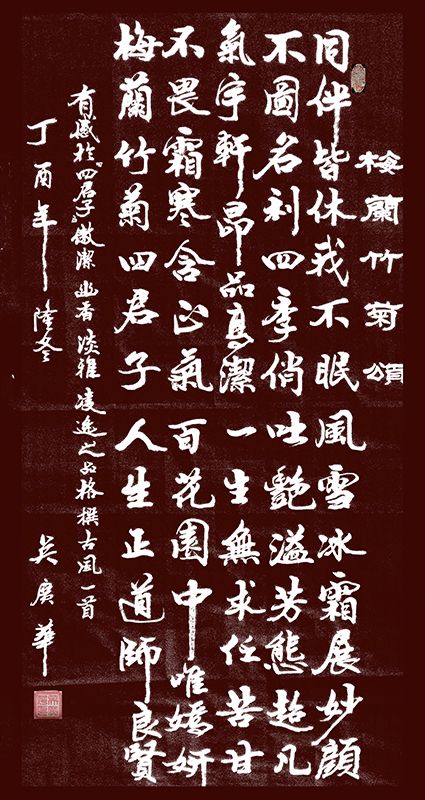 梅蘭竹菊頌
同伴皆休我不眠風雪冰霜展妙顔
不圖名利四季俏吐艷溢芳態超凡
氣宇軒昂品高潔一生無求任苦甘
不畏霜寒含正氣百花園中唯嬌妍
梅蘭竹菊四君子人生正道師良賢
有感於“四君子”傲潔幽香淡雅凌逸之品格撰古風一首
丁酉年隆冬 吴廣華